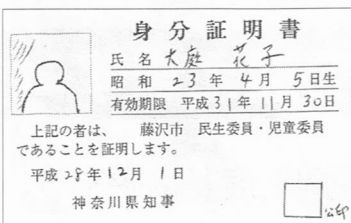 身分証明書
氏名 大庭 花子
昭和 23年 4月 5日生
有効期限 平成31年11月30日
上記の者は、 藤沢市 民生委員・児童委員
であることを証明します。
平成28年12月 1日
神奈川県知事
公印